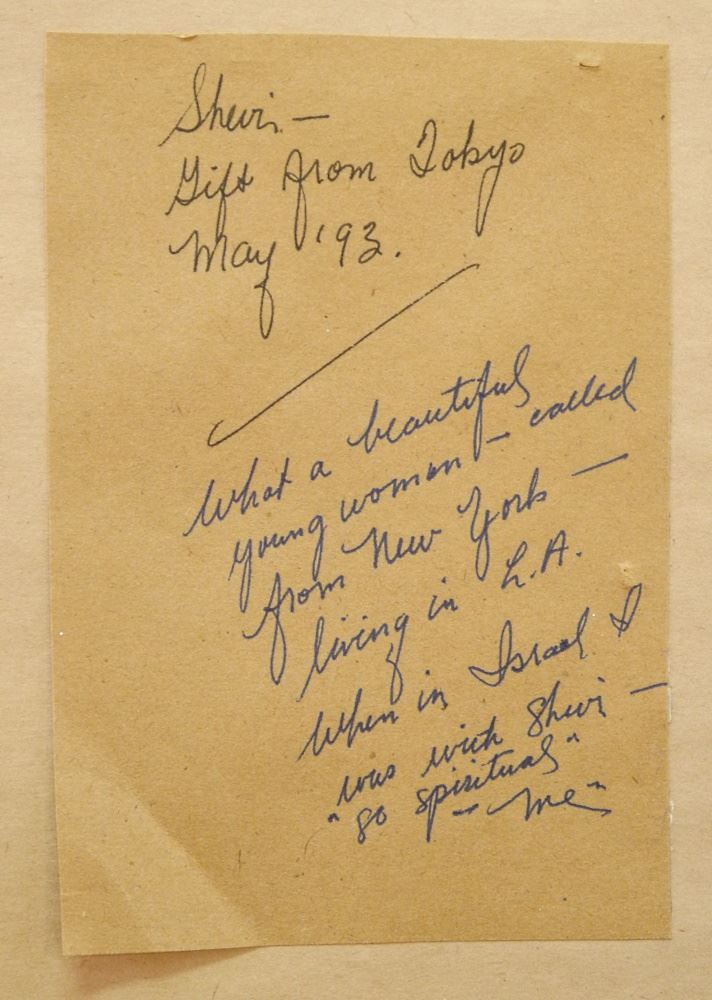 Shevi —
Gift from Tokyo
May '93.
What a beautiful
young woman — called
from New York —
living in L.A.
When in Israel I
was with Shevi —
"so spiritual"
— me"